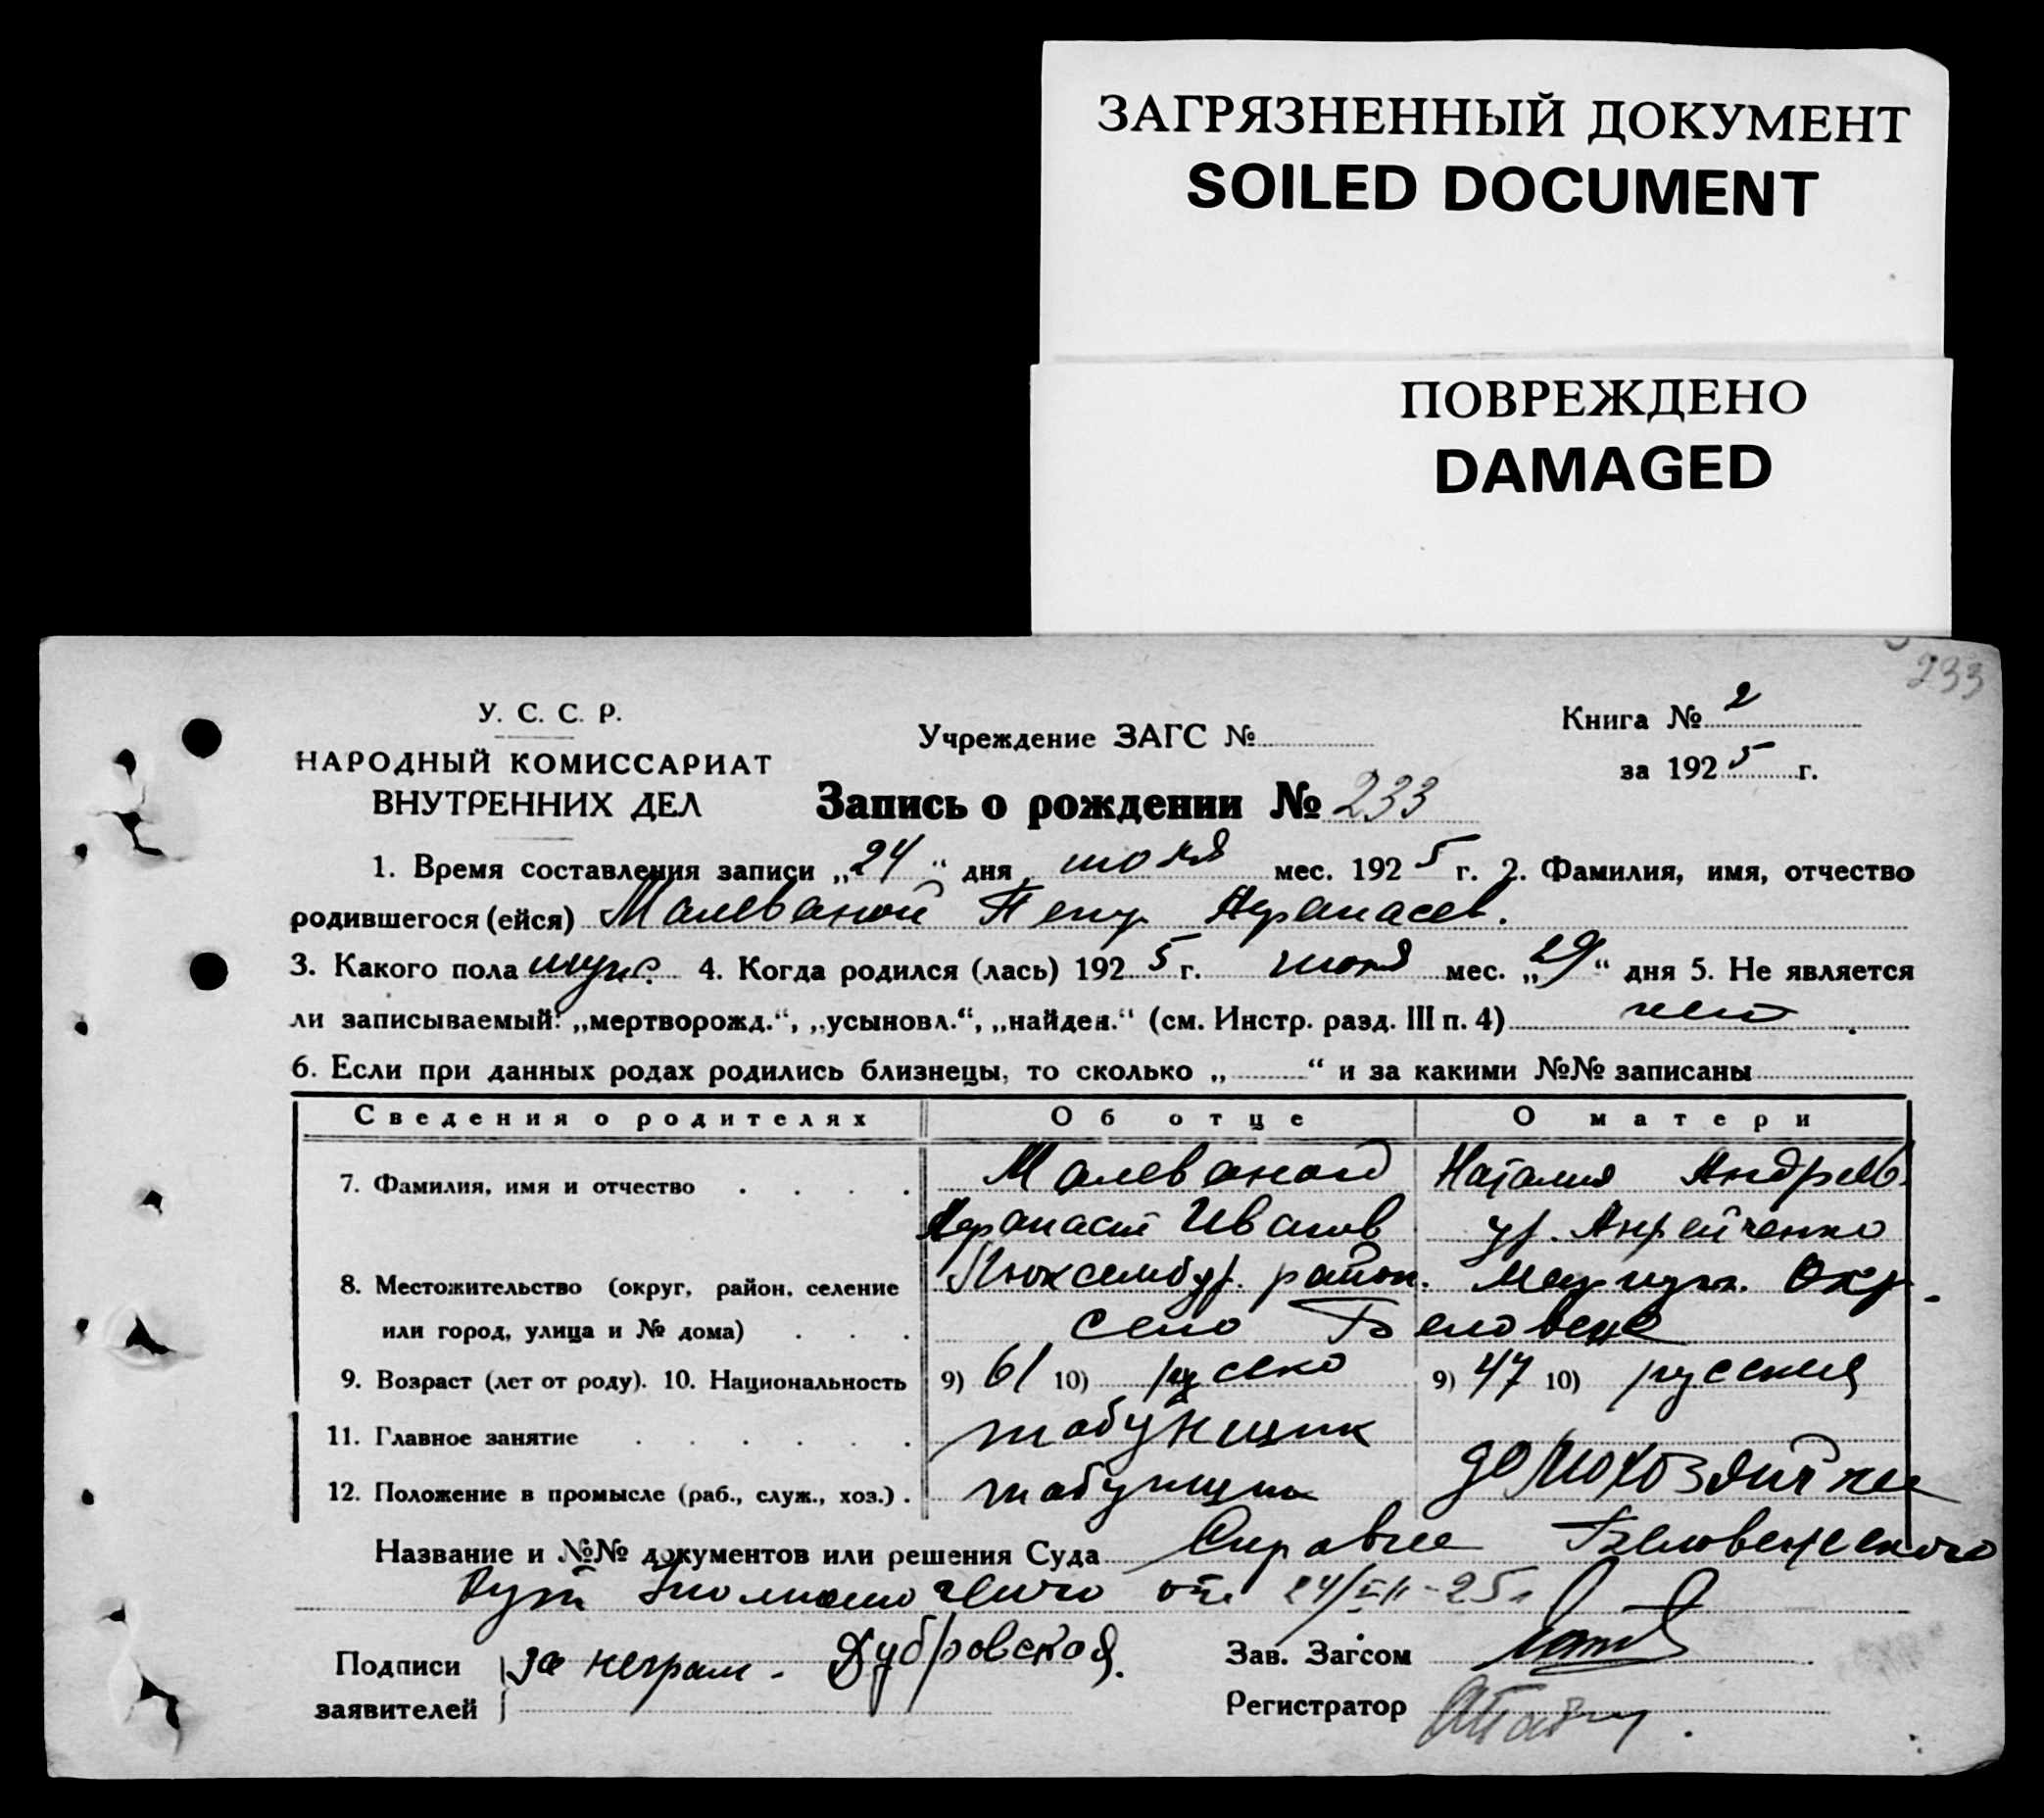 ЗАГРЯЗНЕННЫЙ ДОКУМЕНТ
SOILED DOCUMENT
ПОВРЕЖДЕНО
DAMAGED
233
У. С. С. Р.
НАРОДНЫЙ КОМИССАРИАТ
ВНУТРЕННИХ ДЕЛ
Учреждение ЗАГС №
Книга № 2
за 1925 г.
Запись о рождении № 233
1. Время составления записи „24“ дня июля мес. 1925 г. 2. Фамилия, имя, отчество
родившегося (ейся) Малеваной Петр Афанасев.
3. Какого пола муж. 4. Когда родился (лась) 1925 г. июня мес. „29“ дня 5. Не является
ли записываемый: „мертворожд.“, „усыновл.“, „найден.“ (см. Инстр. разд. III п. 4) нет
6. Если при данных родах родились близнецы, то сколько „ “ и за какими №№ записаны
Сведения о родителях Об отце О матери
7. Фамилия, имя и отчество Малеваной Наталия Андреев.
Афанасий Иванов ур. Андрейченко
8. Местожительство (округ, район, селение Люксембур. район. Мариуп. Окр.
или город, улица и № дома) село Беловеж
9. Возраст (лет от роду). 10. Национальность 9) 61 10) русско 9) 47 10) русская
11. Главное занятие табунщик
12. Положение в промысле (раб., служ., хоз.) табунщик домохозяйка
Название и №№ документов или решения Суда Справке Беловежского
от 24/VII-25г
Подписи заявителей за неграм. Дубровская.
Зав. Загсом
Регистратор